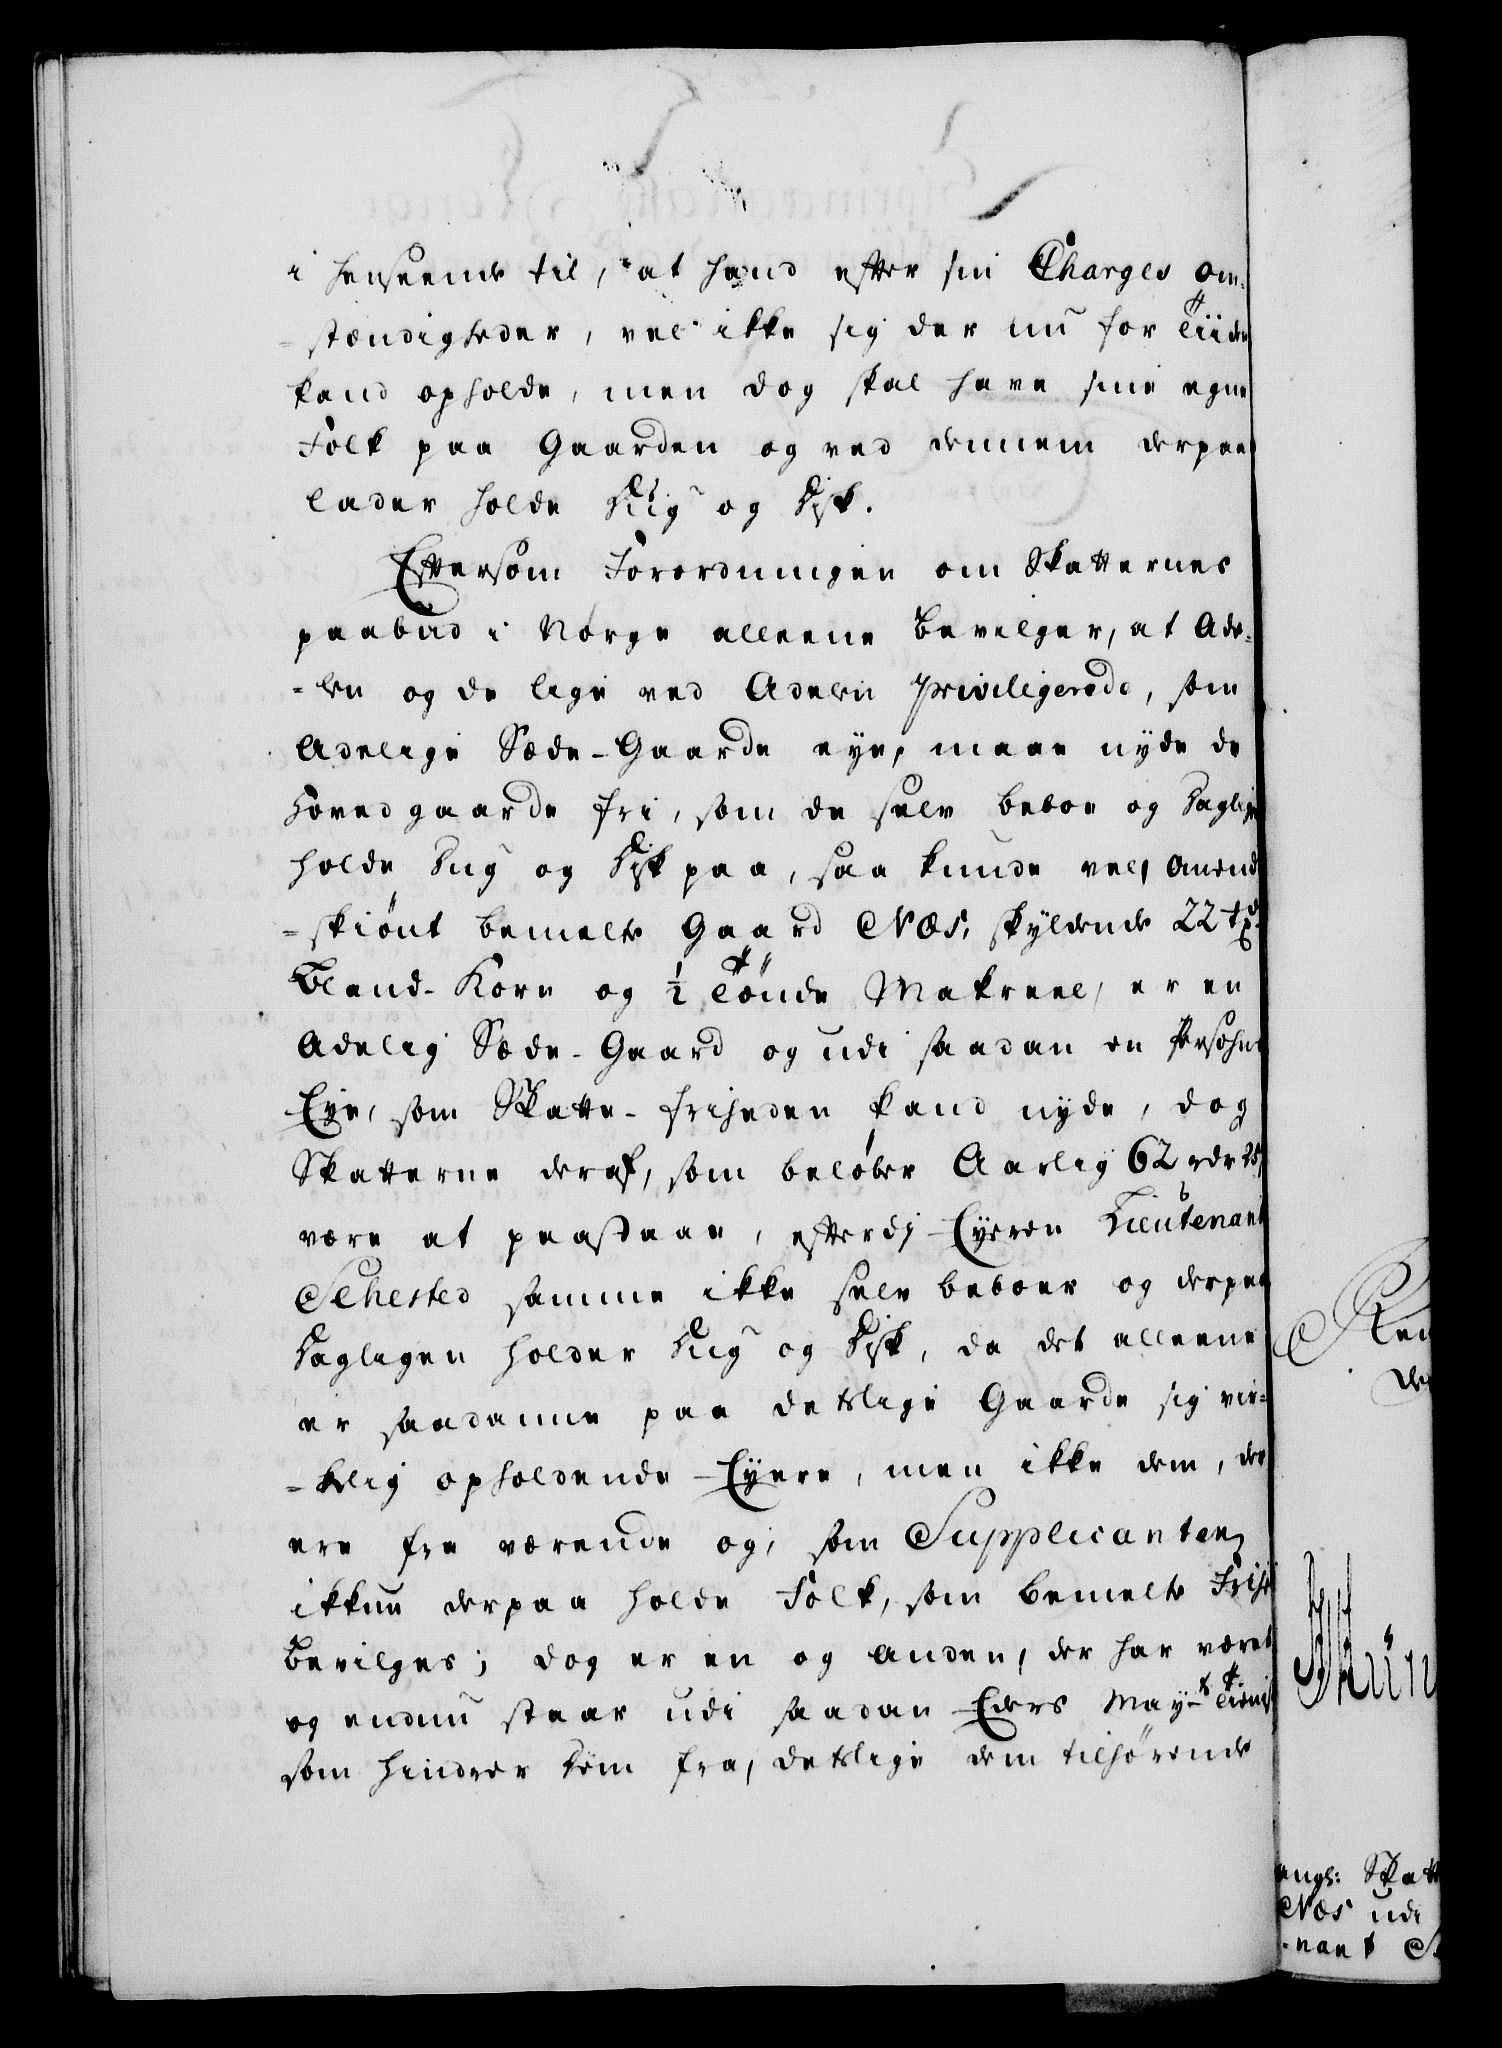 i henseende til, at hand efter sin Charges om-
-stændigheder, vel ikke sig der nu for Tiiden
kand opholde, men dog skal have sine egne
Folk paa Gaarden og ved dennem derpaa
lader holde Dug og Disk.
Eftersom Forordningen om Skatternes
paabud i Norge alleene bevilger, at Ade-
-len og de lige ved Adelen privilegerede, som
Adelige Sæde-Gaarde eye, maae nyde de
Hovedgaarde fri, som de selv beboe og daglig
holde Dug og Disk paa, saa kunde vel, omend
-skiønt bemelte Gaard Næs, skyldende 22
Bland-Korn og ½ Tønde Makreel, er en
Adelig Sæde-Gaard og udi saadan en Persohns
Eye, som Skatte-friheden kand nyde, dog
Skatterne deraf, som beløber Aarlig 62 rdr
være at paastaae, efterdj Eyeren Lieutenant
Sehested samme ikke selv beboer og derpaa
dagligen holder Dug og Disk, da det alleene
er saadanne paa deslige Gaarde sig vir-
-kelig opholdende Eyere, men ikke dem, der
ere fraværende og, som Supplicanten
ikkun derpaa holde Folk, som bemelte
bevilges; dog er en og anden, der har været
og endnu staar udi saadan Eders May.ts Tieniste
som hindrer dem fra, deslige dem tilhørende
Næs udi